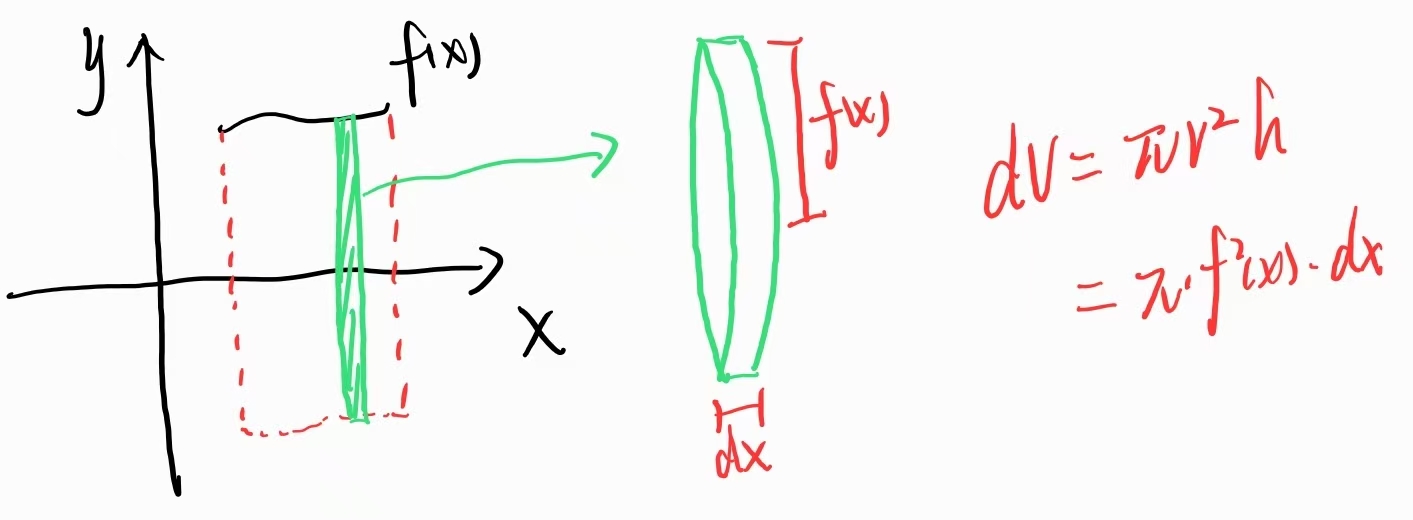 y
f(x)
x
f(x)
dx
dV = πr² h
= π · f²(x) · dx